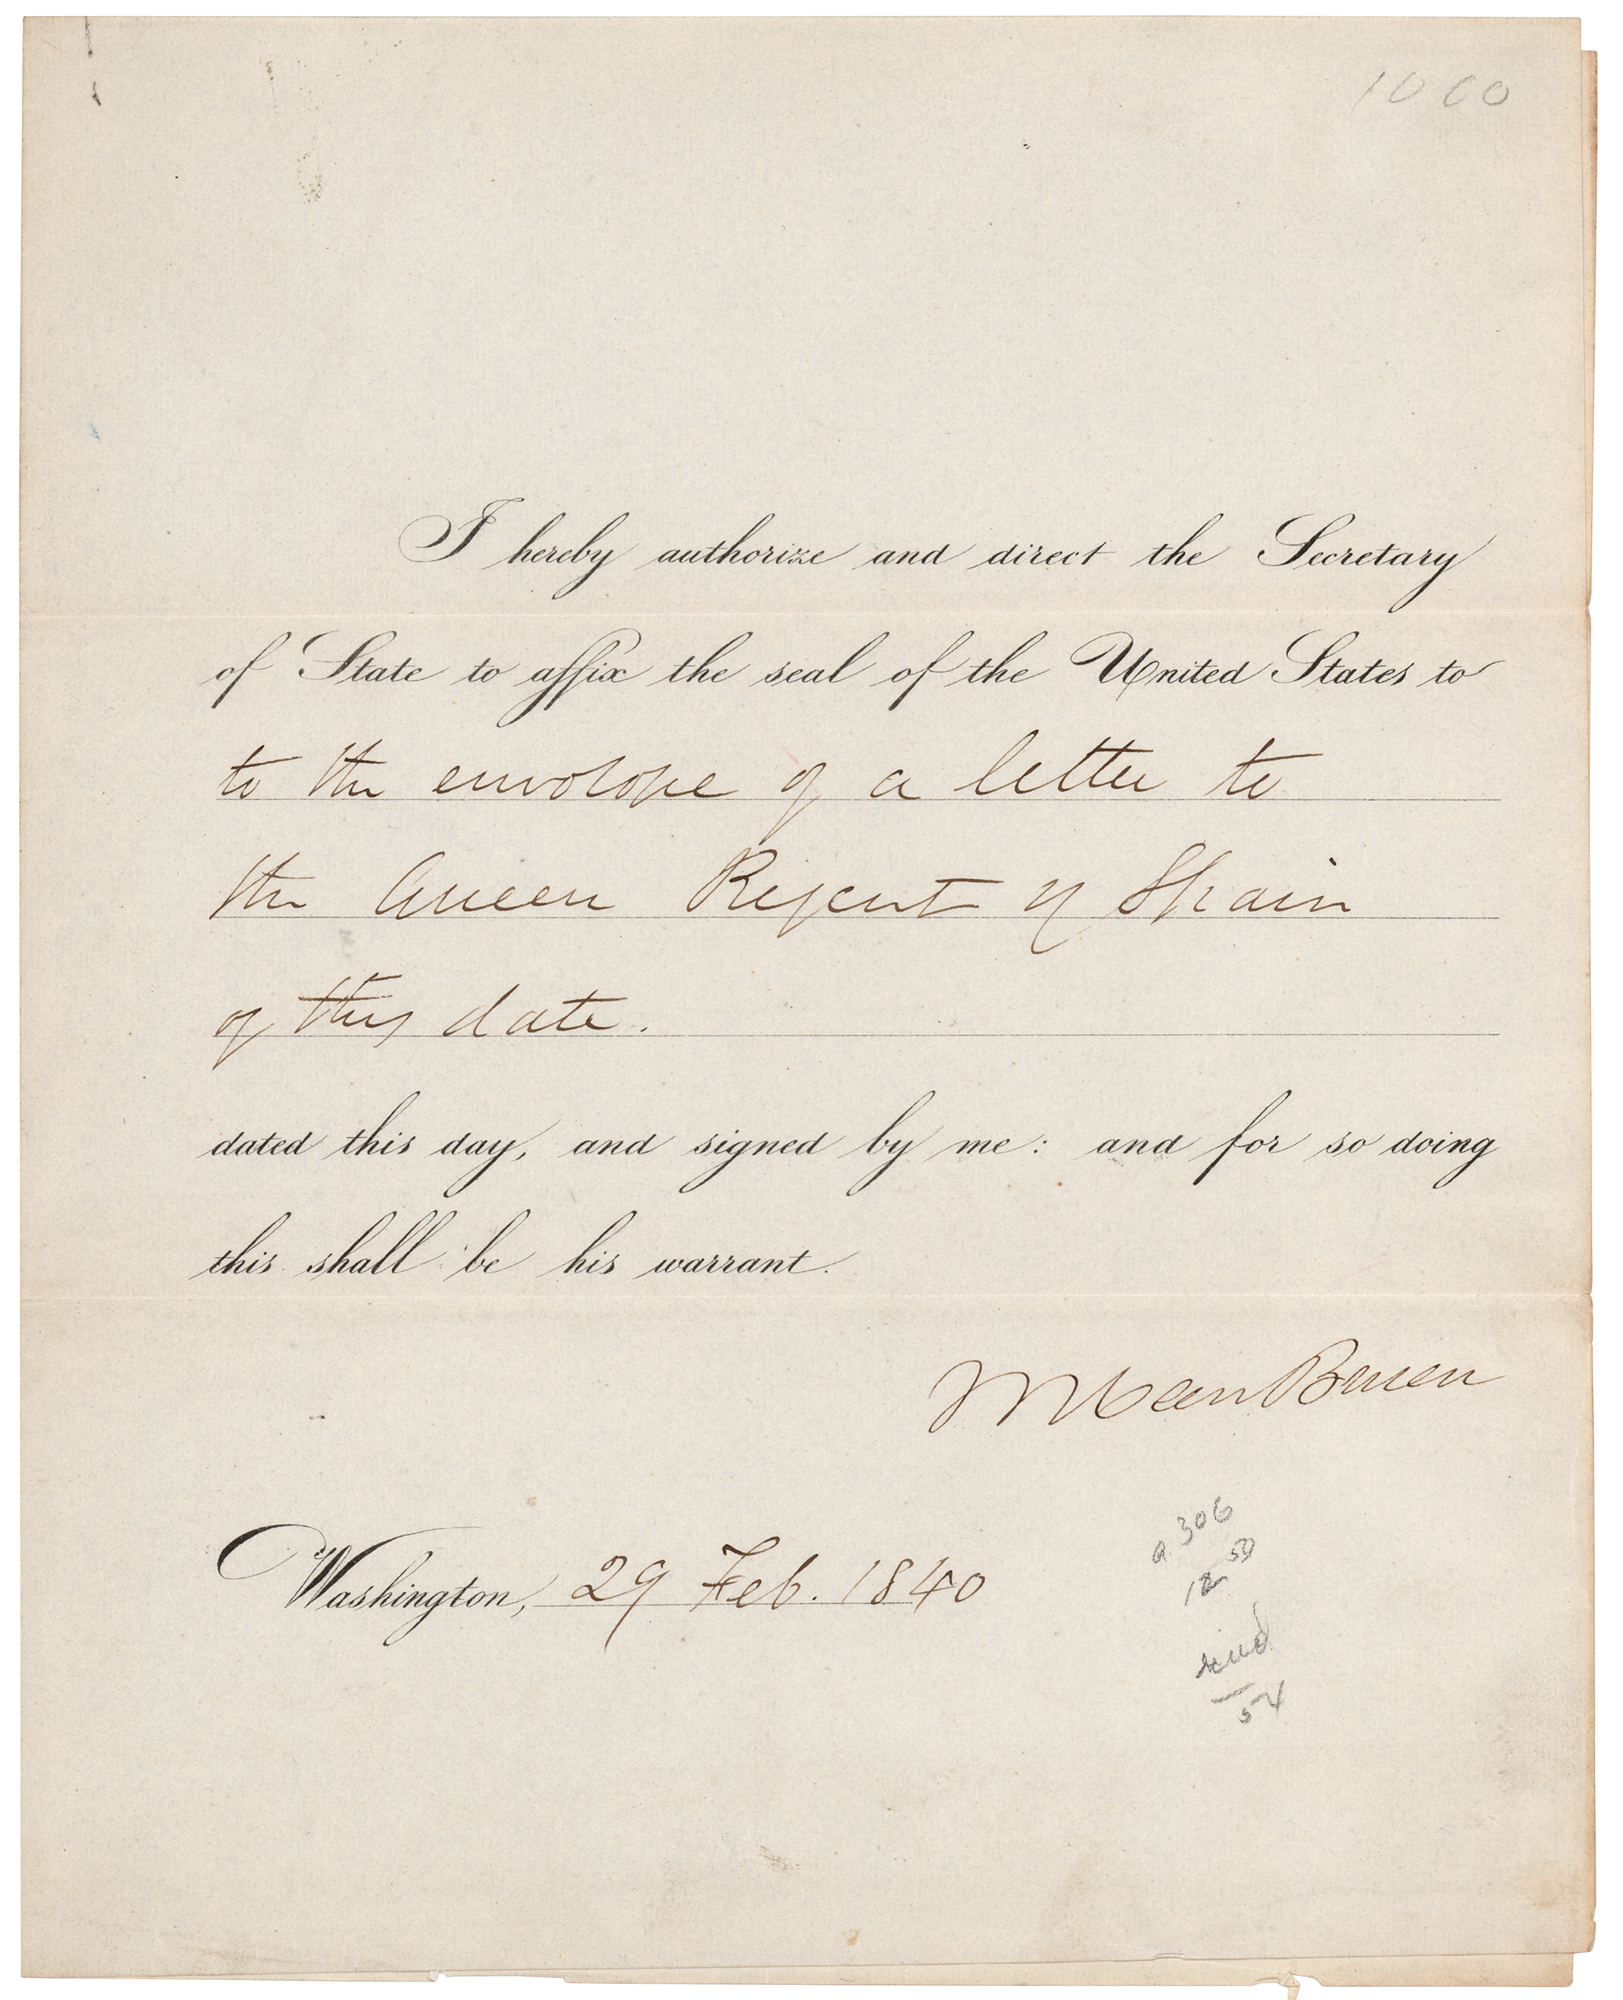 1000
I hereby authorize and direct the Secretary
of State to affix the seal of the United States to
to the envelope of a letter to
the Queen Regent of Spain
of this date.
dated this day, and signed by me: and for so doing
this shall be his warrant.
M Van Buren
Washington, 29 Feb. 1840
306
12 50
54